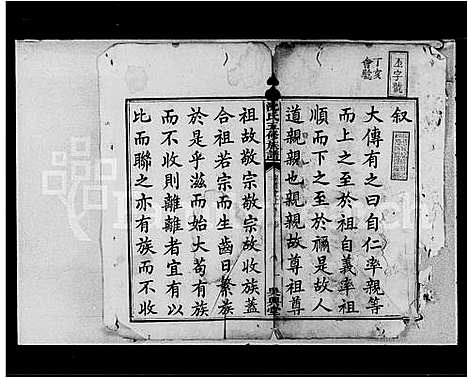 丕字號
丁亥
會鑒
叙
大傳有之曰自仁率親等
而上之至於祖自義率祖
順而下之至於禰是故人
道親親也親親故尊祖尊
氏支修族譜
吳興堂
祖故敬宗敬宗故收族蓋
合祖若宗而生齒日繁族
於是乎滋而始大苟有族
而不收則離離者宜有以
比而聯之亦有族而不收